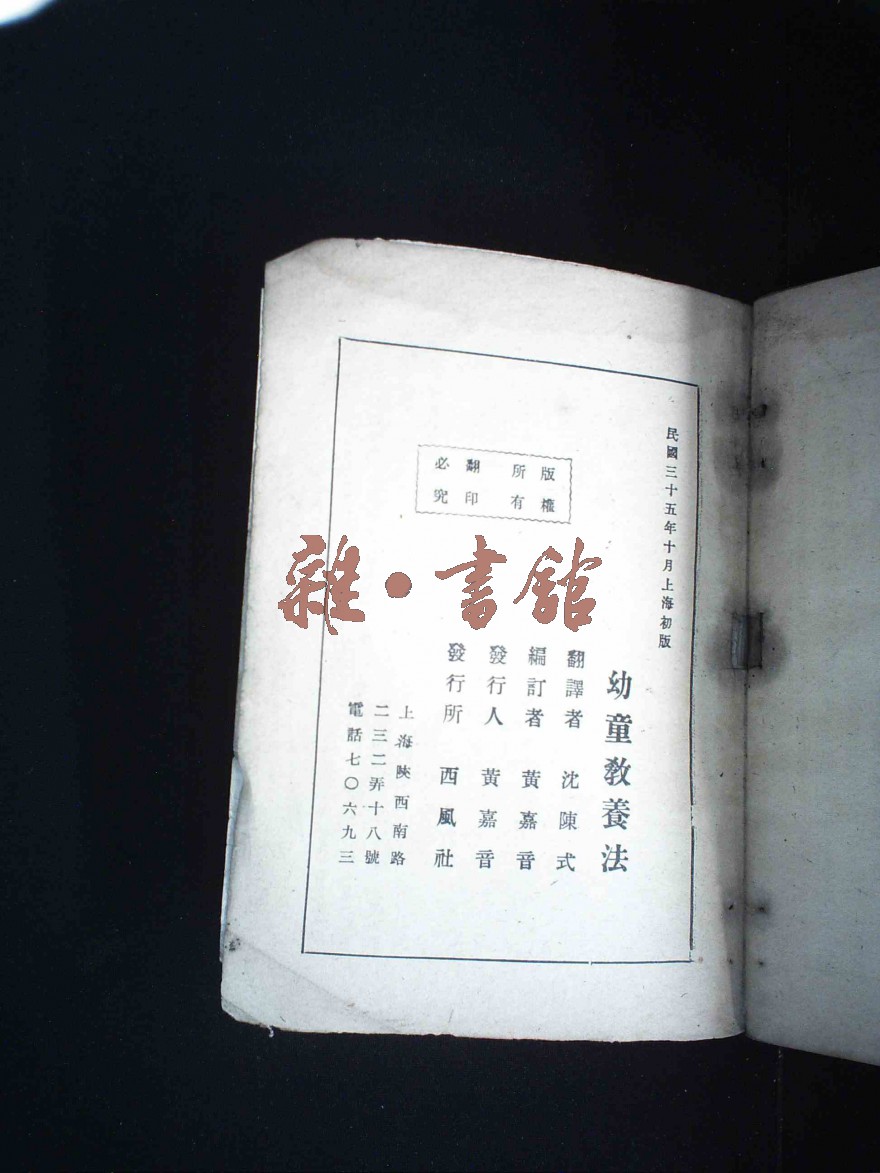 民國三十五年十月上海初版
幼童教養法
翻譯者 沈陳式
編訂者 黃嘉音
發行人 黃嘉音
發行所 西風社
上海陝西南路
二三二弄十八號
電話七〇六九三
版權
所有
翻印
必究
雜·書館